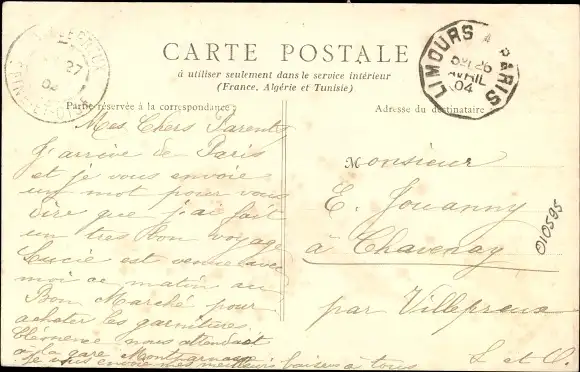 CARTE POSTALE
à utiliser seulement dans le service intérieur
(France, Algérie et Tunisie)
Partie réservée à la correspondance
Adresse du destinataire
LIMOURS A PARIS
26
AVRIL
04
27
04
SEINE-ET-OISE
Mes Chers Parents
J'arrive de Paris
et je vous envoie
un mot pour vous
dire que j'ai fait
un tres bon voyage
Lucie est venue avec
moi ce matin au
Bon Marché pour
acheter les garnitures.
Clémence nous attendait
a la gare Montparnasse
Je vous envoie mes meilleurs baisers à tous
Monsieur
E. Jouanny
à Chavenay
par Villepreux
S et O.
010595